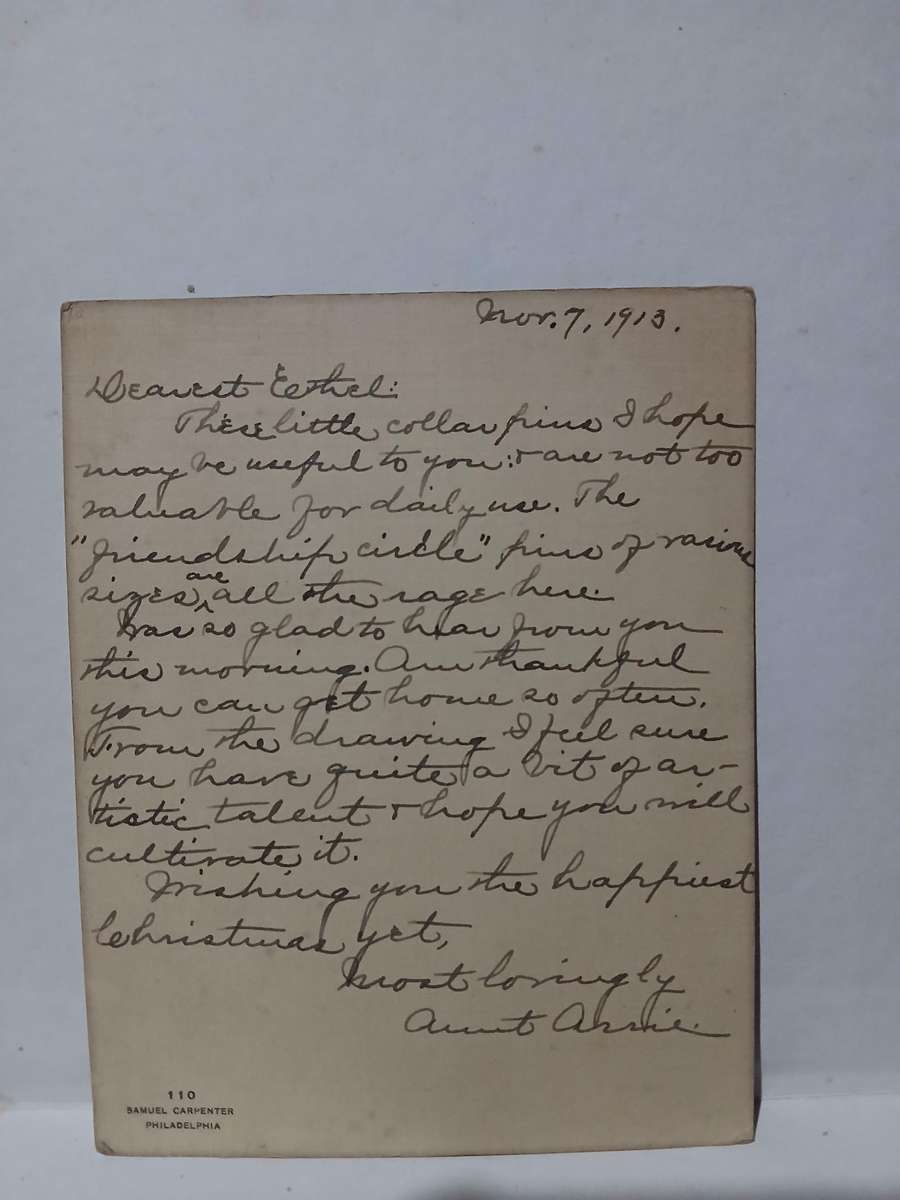 Nov. 7, 1913.
Dearest Ethel:
These little collar pins I hope
may be useful to you: & are not too
valuable for daily use. The
"friendship circle" pins of various
sizes are all the rage here.
Was so glad to hear from you
this morning. Am thankful
you can get home so often.
From the drawing I feel sure
you have quite a bit of ar-
tistic talent & hope you will
cultivate it.
Wishing you the happiest
Christmas yet,
Most lovingly
Aunt
110
SAMUEL CARPENTER
PHILADELPHIA